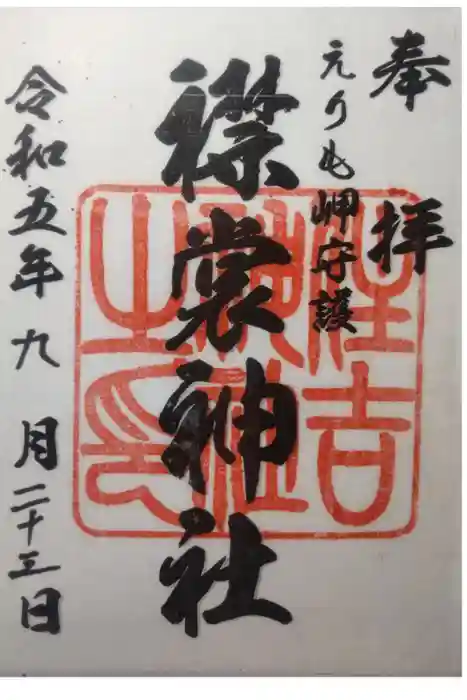 奉拝
えりも岬守護
襟裳神社
住吉
神社
之印
令和五年九月二十三日